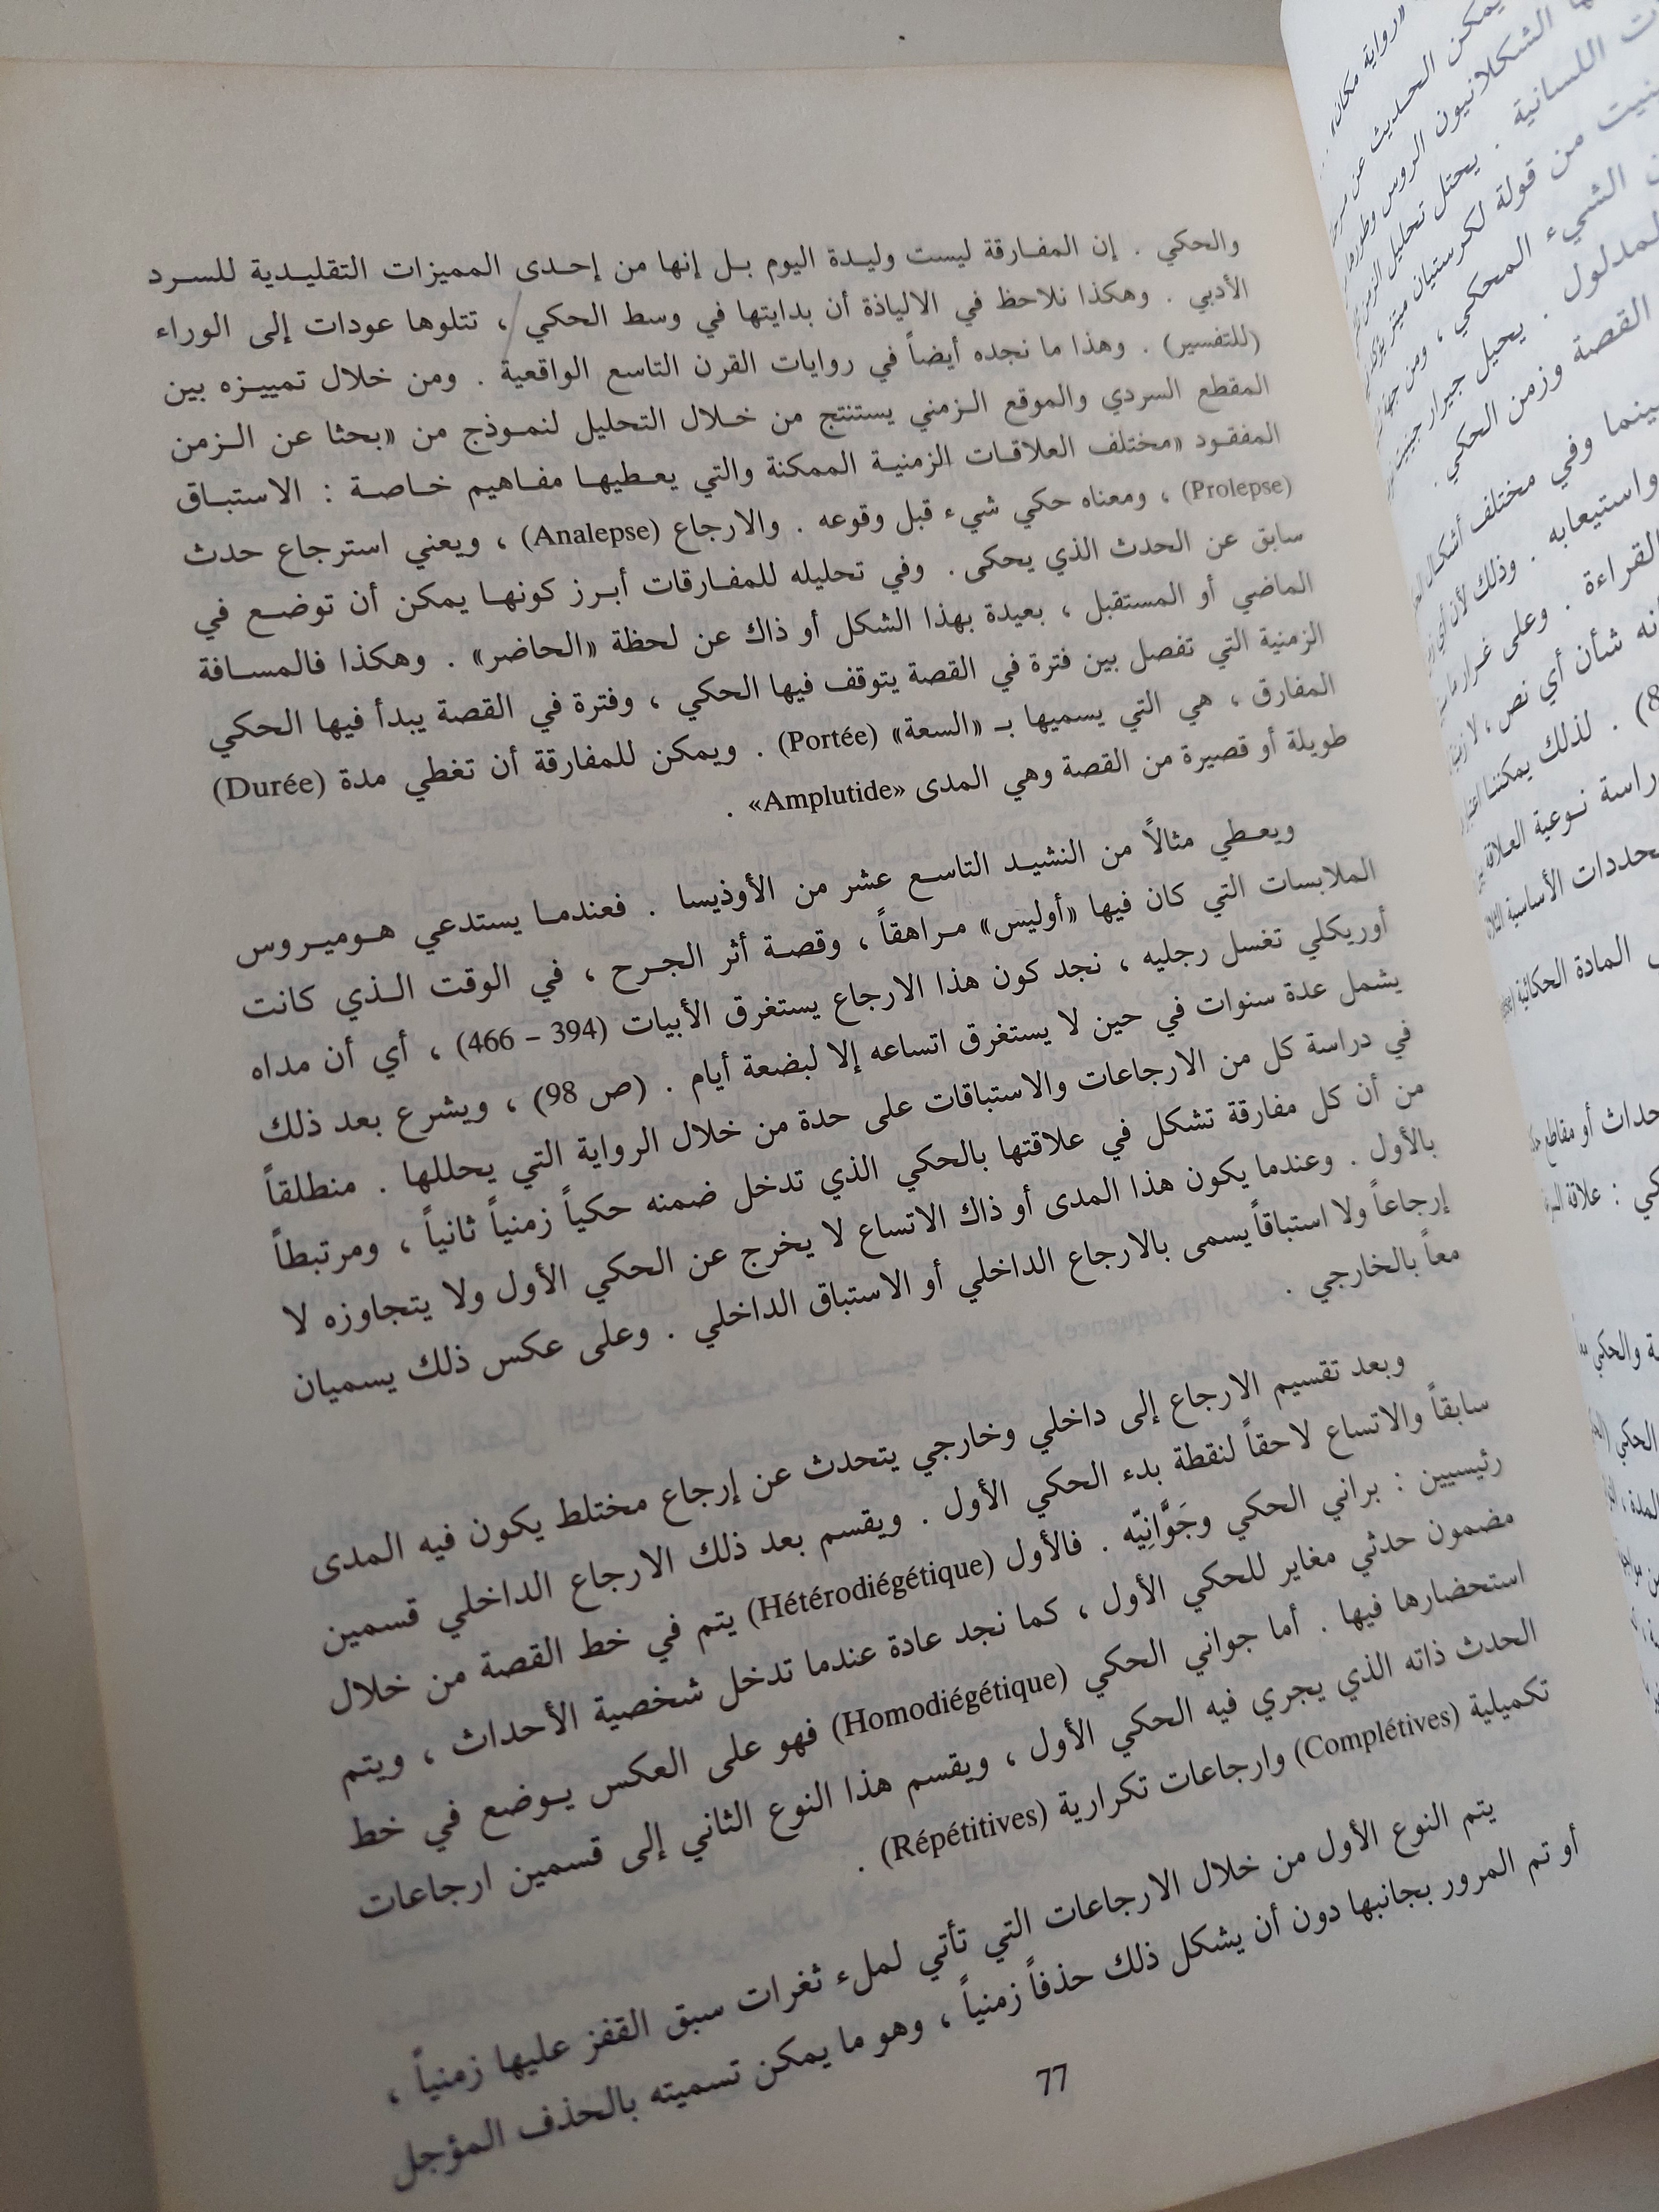 والحكي . إن المفارقة ليست وليدة اليوم بل إنها من إحدى المميزات التقليدية للسرد
الأدبي . وهكذا نلاحظ في الالياذة أن بدايتها في وسط الحكي ، تتلوها عودات إلى الوراء
(للتفسير) . وهذا ما نجده أيضاً في روايات القرن التاسع الواقعية . ومن خلال تمييزه بين
المقطع السردي والموقع الزمني يستنتج من خلال التحليل لنموذج من «بحثا عن الزمن
المفقود «مختلف العلاقات الزمنية الممكنة والتي يعطيها مفاهيم خاصة : الاستباق
(Prolepse) ، ومعناه حكي شيء قبل وقوعه . والارجاع (Analepse) ، ويعني استرجاع حدث
سابق عن الحدث الذي يحكى . وفي تحليله للمفارقات أبرز كونها يمكن أن توضع في
الماضي أو المستقبل ، بعيدة بهذا الشكل أو ذاك عن لحظة «الحاضر» . وهكذا فالمسافة
الزمنية التي تفصل بين فترة في القصة يتوقف فيها الحكي ، وفترة في القصة يبدأ فيها الحكي
المفارق ، هي التي يسميها بـ «السعة» (Portée) . ويمكن للمفارقة أن تغطي مدة (Durée)
طويلة أو قصيرة من القصة وهي المدى «Amplutide» .
ويعطي مثالاً من النشيد التاسع عشر من الأوذيسا . فعندما يستدعي هوميروس
الملابسات التي كان فيها «أوليس» مراهقاً ، وقصة أثر الجرح ، في الوقت الذي كانت
أوريكلي تغسل رجليه ، نجد كون هذا الارجاع يستغرق الأبيات (394 – 466) ، أي أن مداه
يشمل عدة سنوات في حين لا يستغرق اتساعه إلا لبضعة أيام . (ص 98) ، ويشرع بعد ذلك
في دراسة كل من الارجاعات والاستباقات على حدة من خلال الرواية التي يحللها . منطلقاً
من أن كل مفارقة تشكل في علاقتها بالحكي الذي تدخل ضمنه حكياً زمنياً ثانياً ، ومرتبطاً
بالأول . وعندما يكون هذا المدى أو ذاك الاتساع لا يخرج عن الحكي الأول ولا يتجاوزه لا
إرجاعاً ولا استباقاً يسمى بالارجاع الداخلي أو الاستباق الداخلي . وعلى عكس ذلك يسميان
معاً بالخارجي .
وبعد تقسيم الارجاع إلى داخلي وخارجي يتحدث عن إرجاع مختلط يكون فيه المدى
سابقاً والاتساع لاحقاً لنقطة بدء الحكي الأول . ويقسم بعد ذلك الارجاع الداخلي قسمين
رئيسيين : براني الحكي وجَوَّانِيّه . فالأول (Hétérodiégétique) يتم في خط القصة من خلال
مضمون حدثي مغاير للحكي الأول ، كما نجد عادة عندما تدخل شخصية الأحداث ، ويتم
استحضارها فيها . أما جواني الحكي (Homodiégétique) فهو على العكس يوضع في خط
الحدث ذاته الذي يجري فيه الحكي الأول ، ويقسم هذا النوع الثاني إلى قسمين ارجاعات
تكميلية (Complétives) وارجاعات تكرارية (Répétitives) .
يتم النوع الأول من خلال الارجاعات التي تأتي لملء ثغرات سبق القفز عليها زمنياً ،
أو تم المرور بجانبها دون أن يشكل ذلك حذفاً زمنياً ، وهو ما يمكن تسميته بالحذف المؤجل
77
«رواية مكان»
يمكن الحديث عن
الشكلانيون الروس
اللسانية . يحتل تحليل الزمن
من قولة لكرستيان ميتز
الشيء المحكي ، ومن جهة
المدلول . يحيل جيرار جينيت
القصة وزمن الحكي .
وفي مختلف أشكال
واستيعابه . وذلك لأن
القراءة . وعلى غرار
شأن أي نص ، لا
. لذلك يمكننا
نوعية العلاقة
الأساسية
المادة الحكائية
أو مقاطع
: علاقة
والحكي
الحكي